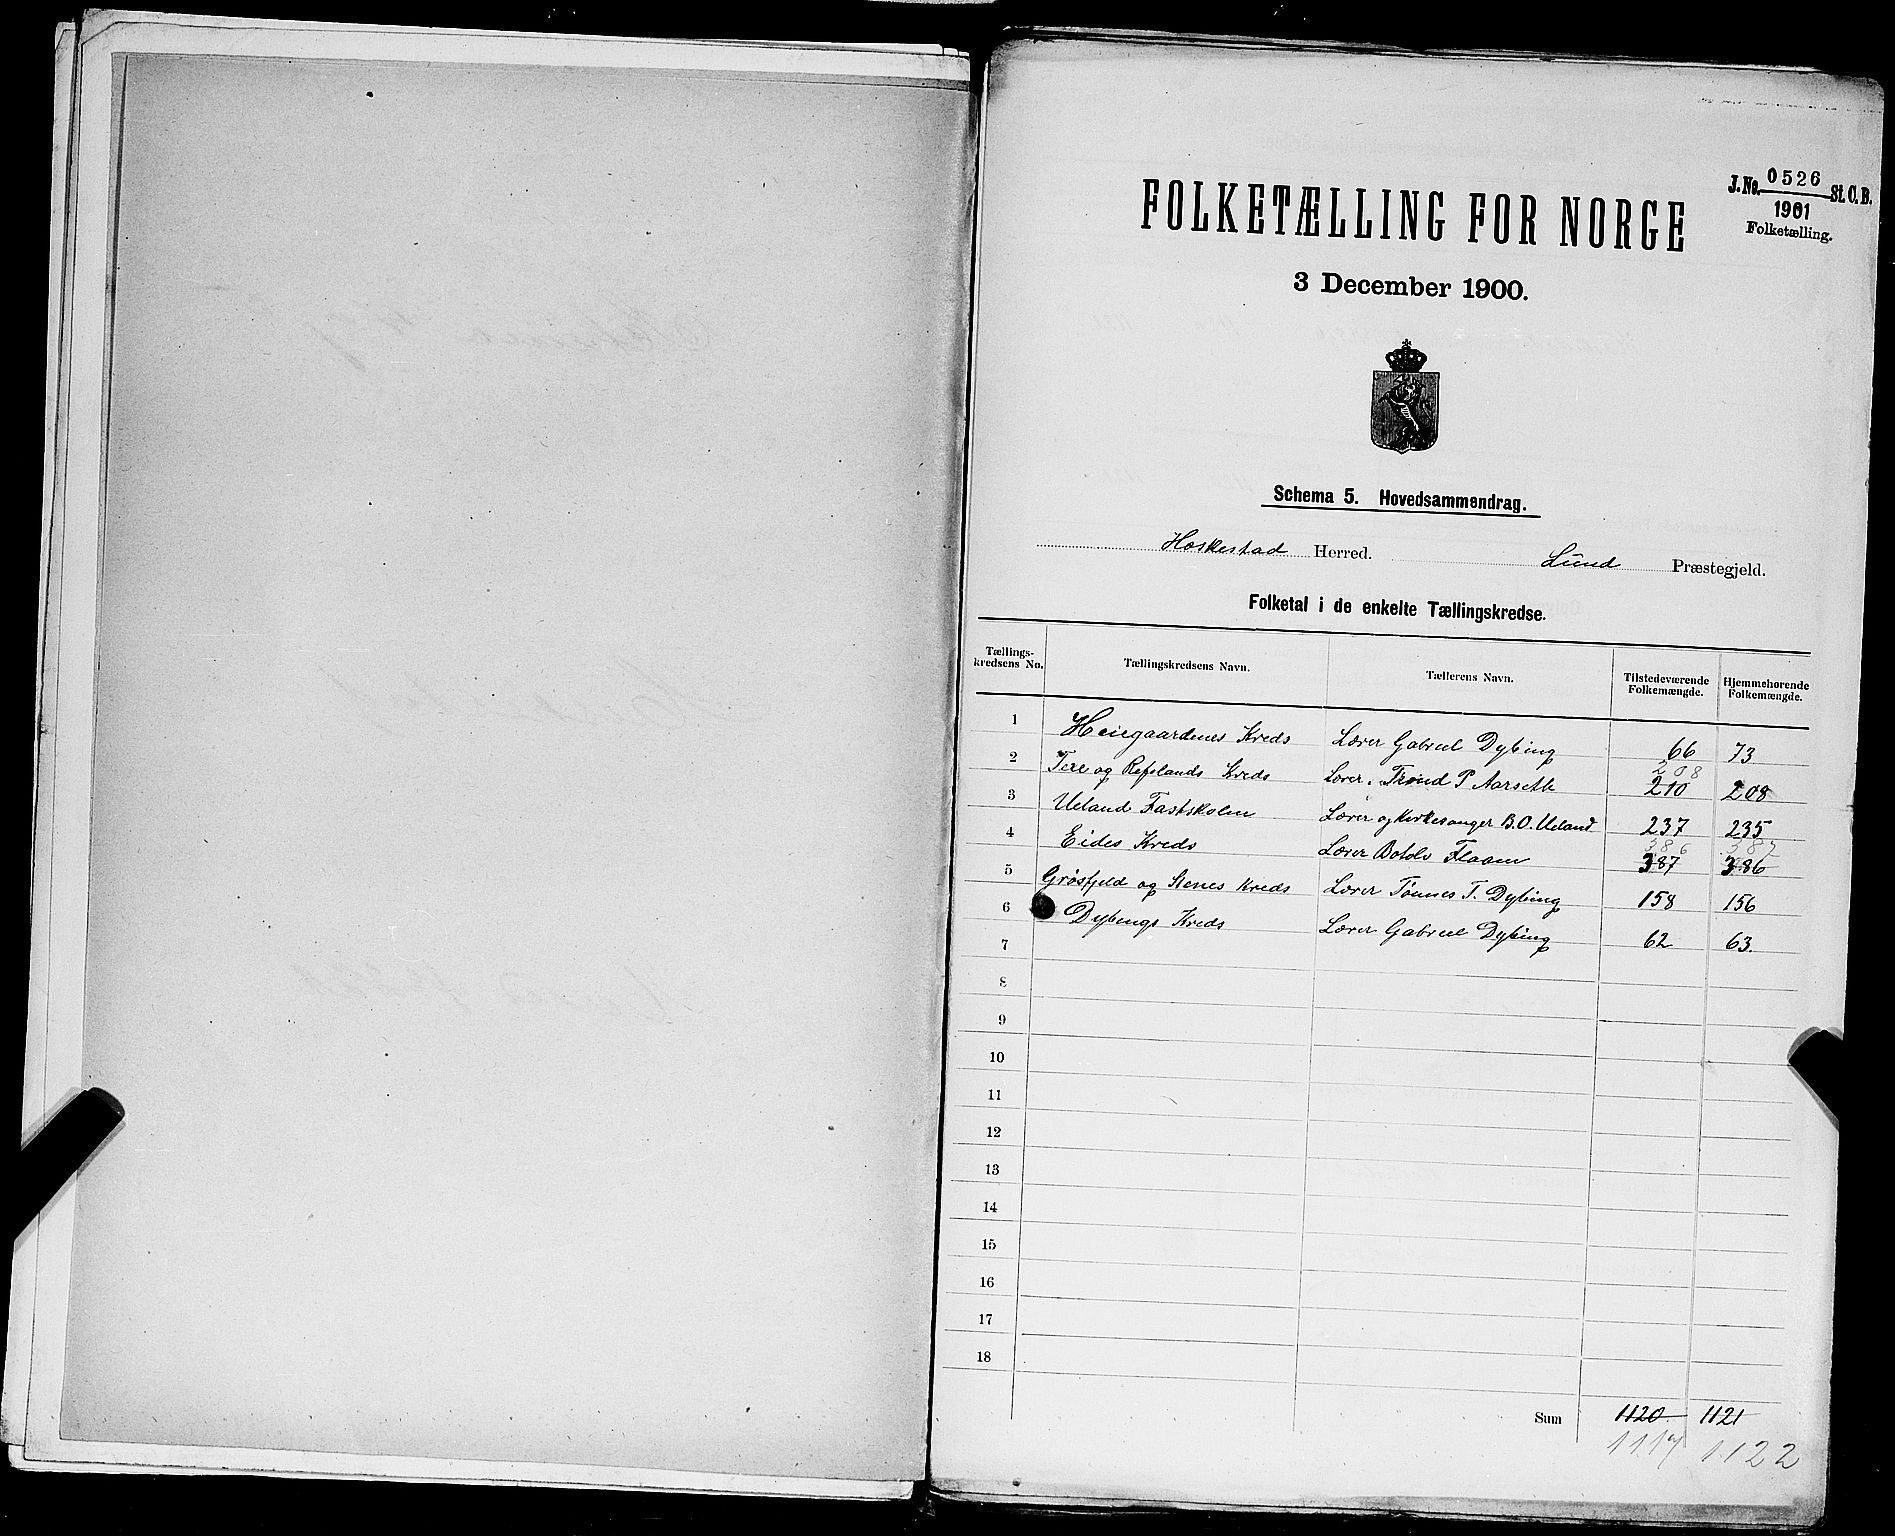 J. No. 0526 St. C. B.
1901
Folketælling.
FOLKETÆLLING FOR NORGE
3 December 1900.
Schema 5. Hovedsammendrag.
Heskestad Herred. Lund Præstegjeld.
Folketal i de enkelte Tællingskredse.
Tællings-kredsens No. Tællingskredsens Navn. Tællerens Navn. Tilstedeværende Folkemængde. Hjemmehørende Folkemængde.
1 Heiegaardenes Kreds Lærer Gabriel Dybing 66 73
208
2 Tere og Refslands Kreds Lærer Trond P Aarseth 210 208
3 Ueland Fastskolen Lærer og Kirkesanger B. O. Ueland 237 235
386 387
4 Eides Kreds Lærer Botolv Flaam 387 386
5 Grøsfjeld og Stenes Kreds Lærer Tønnes T. Dybing 158 156
6 Dybings Kreds Lærer Gabriel Dybing 62 63.
7
8
9
10
11
12
13
14
15
16
17
18
Sum 1120 1121
1117 1122